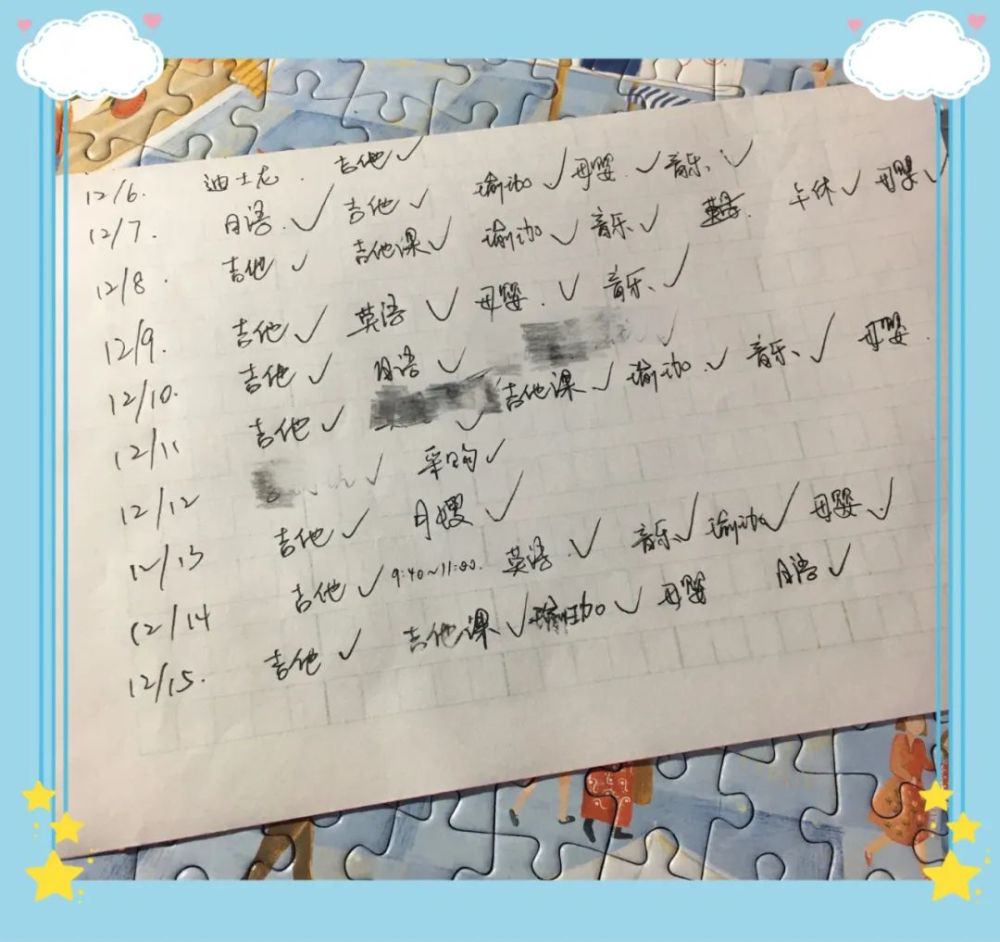 12/6. 迪士尼. 吉他✓
12/7. 日语.✓ 吉他✓ 瑜伽✓ 母婴.✓ 音乐✓
12/8. 吉他✓ 吉他课✓ 瑜伽✓ 音乐✓ 午休✓ 母婴✓
12/9. 吉他✓ 英语✓ 母婴.✓ 音乐✓
12/10. 吉他✓ 日语✓ ✓
12/11 吉他✓ ✓ 吉他课✓ 瑜伽✓ 音乐✓ 母婴.
12/12 ✓ 采购✓
12/13 吉他✓ 月嫂✓
12/14 吉他✓ 9:40~11:00. 英语.✓ 音乐✓ 瑜伽✓ 母婴✓
12/15. 吉他✓ 吉他课✓ 瑜伽✓ 母婴 日语✓